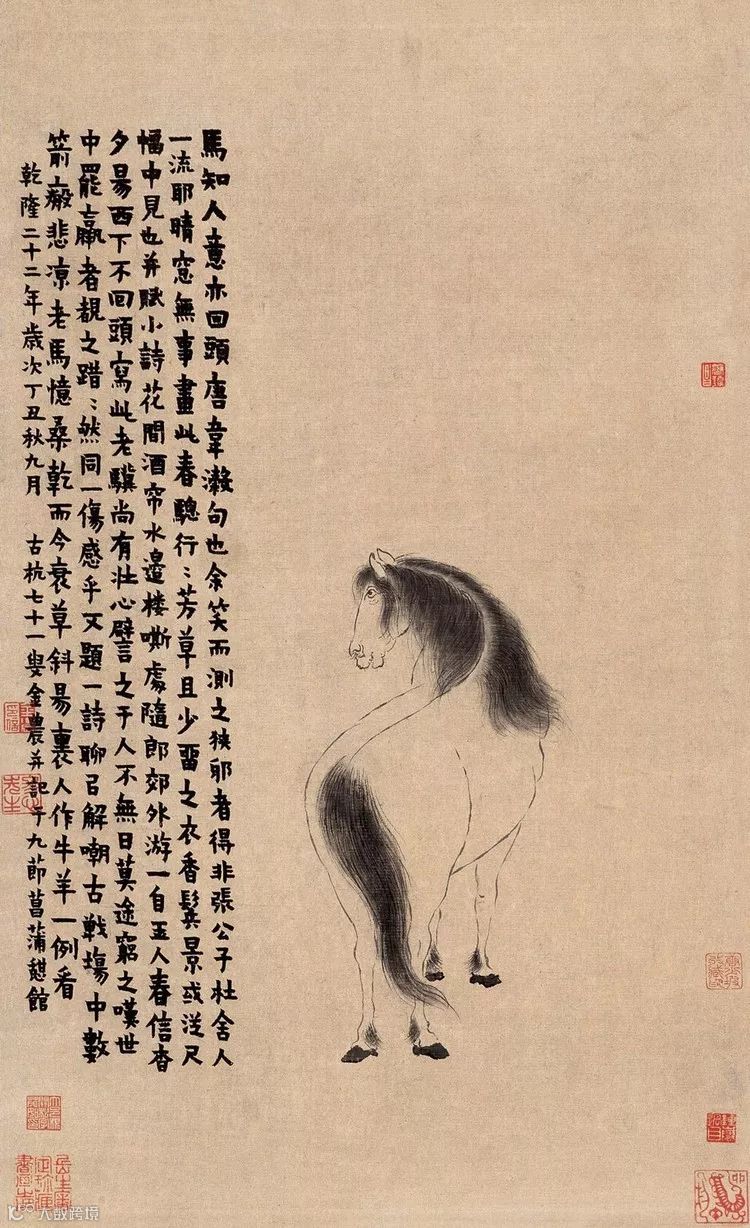 馬知人意亦回頭唐韋濲句也余笑而測之狹邪者得非張公子杜舍人
一流耶晴窓無事畫此春驄行:芳草且少畱之衣香鬓景或從尺
幅中見也并賦小詩花間酒帘水邊楼嘶處隨郎郊外游一自玉人春信杳
夕昜西下不回頭寫此老驥尚有壯心譬之于人不無日莫途窮之嘆世
中罷羸者覩之踖:然同一傷感乎又題一詩聊㠯解嘲古戰塲中數
箭瘢悲凉老馬憶桑乾而今衰草斜昜裏人作牛羊一例看
乾隆二十二年歲次丁丑秋九月 古杭七十一叟金農并記于九節菖蒲憩館
大数跨境